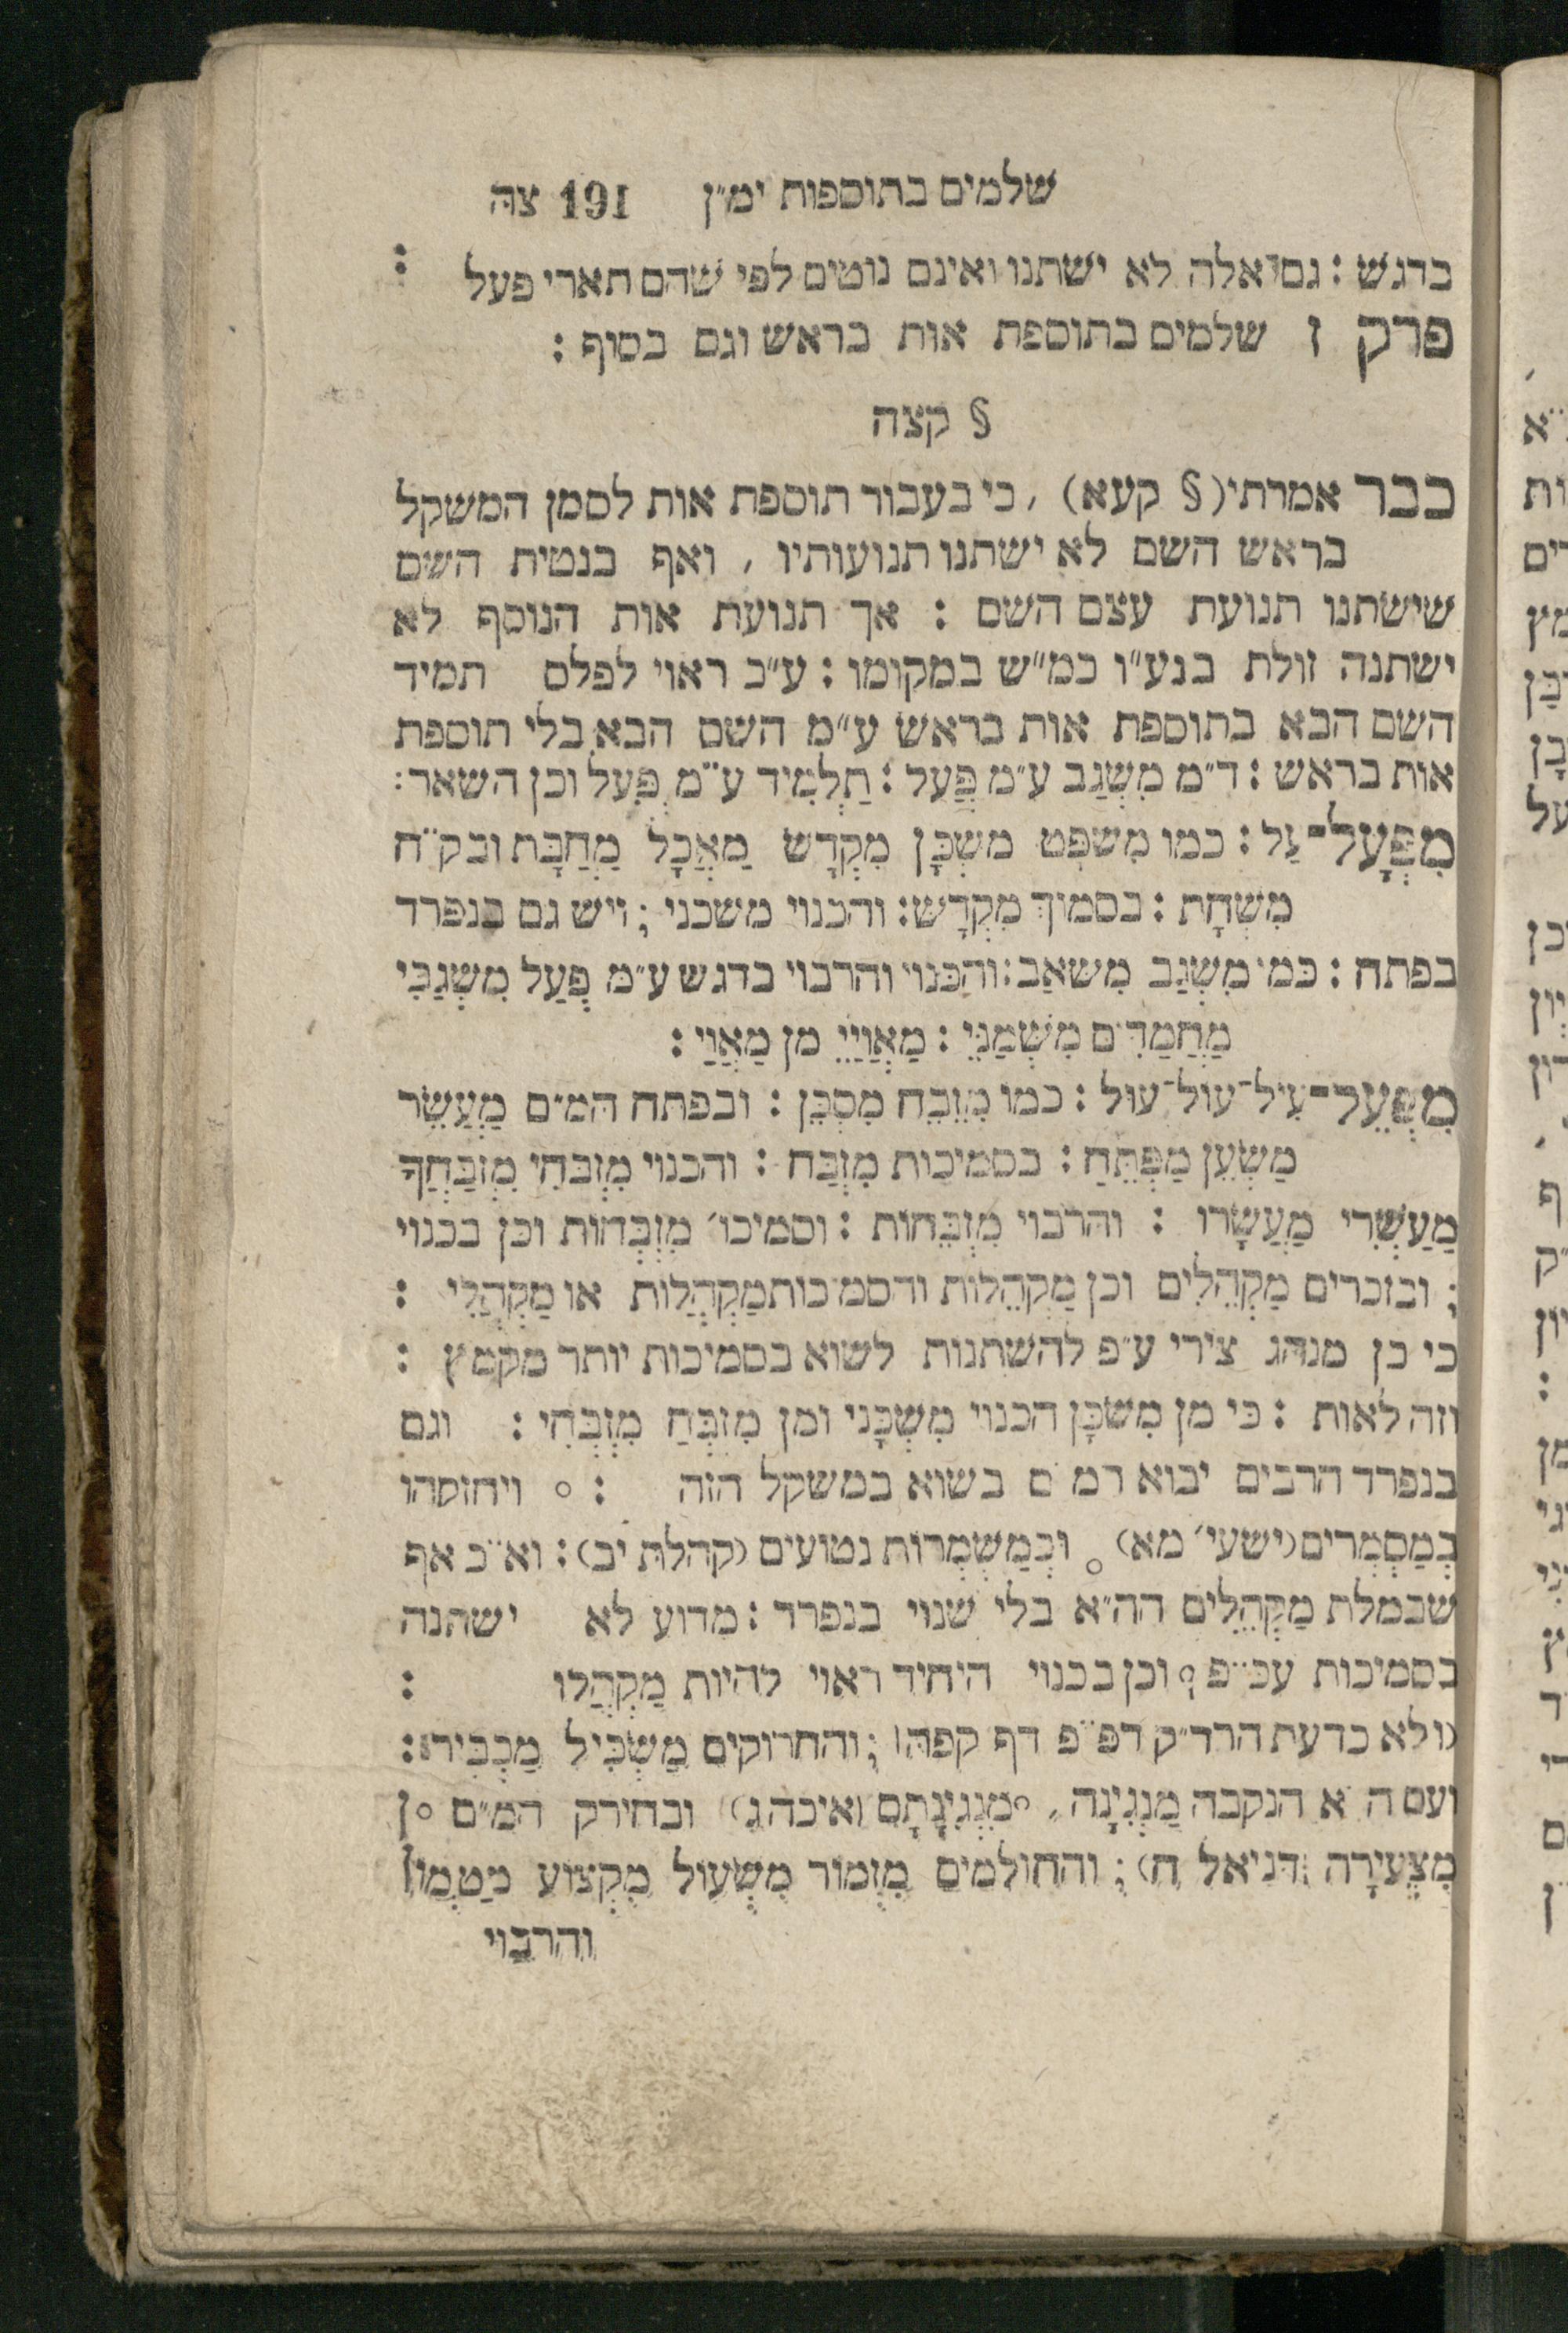 שלמים בתוספות ימ״ן 191 צה
בדגש : גם אלה לא ישתנו ואינם נוטים לפי שהם תארי פעל :
פרק ז שלמים בתוספת אות בראש וגם בסוף :
§ קצה
כבר אמרתי (§ קעא) , כי בעבור תוספת אות לסמן המשקל
בראש השם לא ישתנו תנועותיו , ואף בנטית השם
שישתנו תנועת עצם השם : אך תנועת אות הנוסף לא
ישתנה זולת בנע״ו כמ״ש במקומו : ע״כ ראוי לפלס תמיד
השם הבא בתוספת אות בראש ע״מ השם הבא בלי תוספת
אות בראש : ד״מ מִשְׂגַב ע״מ פְּעַל : תַלְמִיד ע״מ פְּעִל וכן השאר :
מִפְּעָל־עַל : כמו מִשפָּט משְכָּן מִקְדָש מַאֲכָל מַחֲבָת ובק״ח
מִשְחָת : בסמוך מִקְדָש : והכנוי משכני ; ויש גם בנפרד
בפתח : כמ׳ מִשְׂגַב מִשאַב : והַכנוי והרבוי בדגש ע״מ פְּעַל מִשְׂגַבִּי
מַחֲמַדִּים מִשְמַנֵּי : מַאֲוַיֵּי מן מַאֲוַי :
מִפְעֵל־עִיל־עוֹל־עוּל : כמו מִזְבֵחַ מִסְכֵּן : ובפתח המ״ם מַעְשֵׂר
מַשְעֵן מַפְתֵּחַ : בסמיכות מִזְבַּח : והכנוי מִזְבחִי מִזְבַּחֲךָ
מַעַשְרִי מַעֲשָרו : והרבוי מִזְבְּחוֹת : וסמיכו׳ מִזְבְּחוֹת וכן בכנוי
; ובזכרים מַקְהֵלִים וכן מַקְהֵלוֹת והסמיכות מַקְהֲלוֹת או מַקְהֲלֵי :
כי כן מנהג צירי ע״פ להשתנות לשוא בסמיכות יותר מקמץ :
וזה לאות : כי מן מִשכָּן הכנוי מִשְכָּני ומן מִזבְּחַ מִזְבְּחִי : וגם
בנפרד הרבים יבוא רמ״ם בשוא במשקל הזה : ° ויחזקהו
בְמַסְמְרִים (ישעי׳ מא) ° וּכְמַשְמְרות נטועים (קהלת יב) : וא״כ אף
שבמלת מַקְהֵלִים הה״א בלי שנוי בנפרד : מדוע לא ישתנה
בסמיכות עכ״פ ? וכן בכנוי היחיד ראוי להיות מַקְהֲלו :
(ולא כדעת הרד״ק דפ״פ דף קפה) ; והחרוקים מַשְׂכִּיל מַכְבִּיר :
ועם ה״א הנקבה מַנְגִינָה , °מַנְגִינָתָם (איכה ג) ובחירק המ״ם °ן
מִצְּעִירָה (דניאל ח) ; והחולמים מִזְמוֹר מִשְעוֹל מִקְצוֹעַ מַטְמוֹן
והרבוי